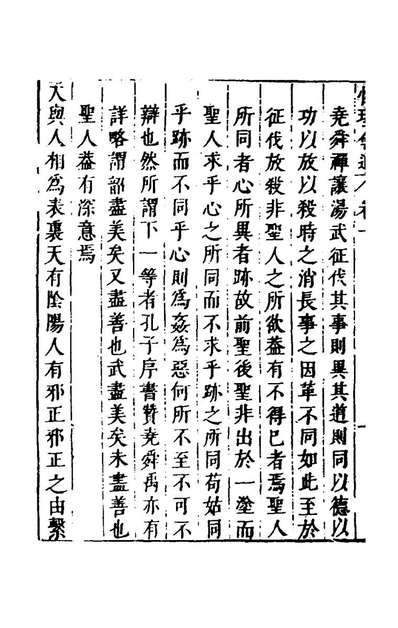 堯舜禪讓湯武征伐其事則異其道則同以德以
功以放以殺時之消長事之因革不同如此至於
征伐放殺非聖人之所欲葢有不得已者焉聖人
所同者心所異者跡故前聖後聖非出於一塗而
聖人求乎心之所同而不求乎跡之所同苟姑同
乎跡而不同乎心則為姦為惡何所不至不可不
辯也然所謂下一等者孔子序書贊堯舜禹亦有
詳略謂韶盡美矣又盡善也武盡美矣未盡善也
聖人葢有深意焉
天與人相為表裏天有陰陽人有邪正邪正之由繫